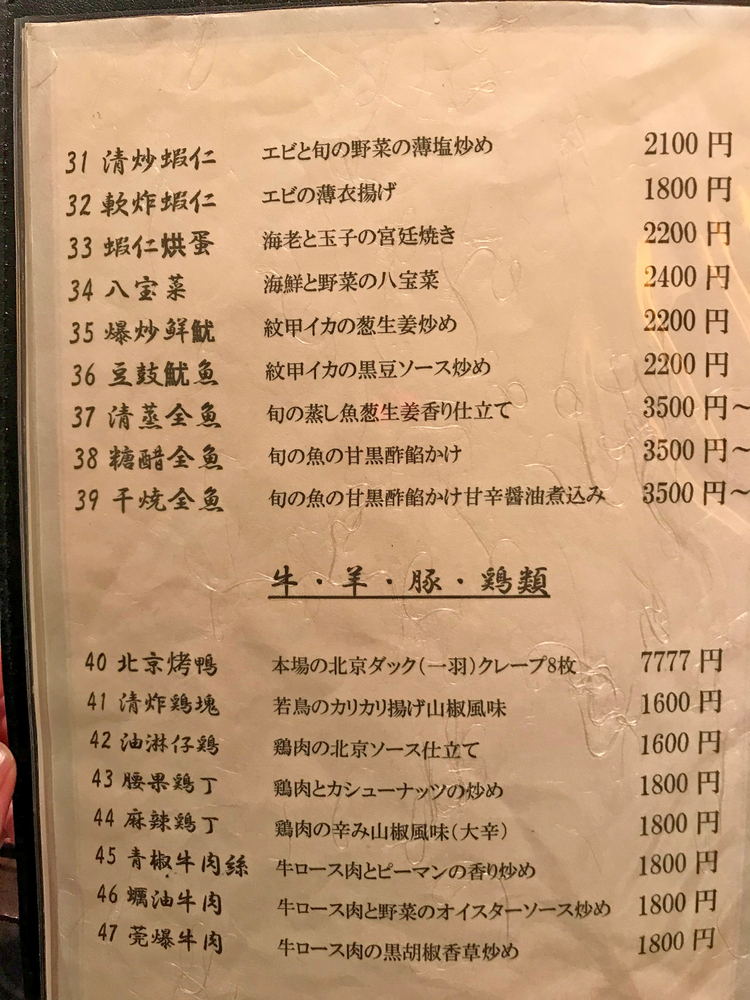 31 清炒蝦仁 エビと旬の野菜の薄塩炒め 2100 円
32 軟炸蝦仁 エビの薄衣揚げ 1800 円
33 蝦仁烘蛋 海老と玉子の宮廷焼き 2200 円
34 八宝菜 海鮮と野菜の八宝菜 2400 円
35 爆炒鮮魷 紋甲イカの葱生姜炒め 2200 円
36 豆鼓魷魚 紋甲イカの黒豆ソース炒め 2200 円
37 清蒸全魚 旬の蒸し魚葱生姜香り仕立て 3500 円～
38 糖醋全魚 旬の魚の甘黒酢餡かけ 3500 円～
39 干焼全魚 旬の魚の甘黒酢餡かけ甘辛醤油煮込み 3500 円～
牛・羊・豚・鶏類
40 北京烤鴨 本場の北京ダック（一羽）クレープ8枚 7777 円
41 清炸鶏塊 若鳥のカリカリ揚げ山椒風味 1600 円
42 油淋仔鶏 鶏肉の北京ソース仕立て 1600 円
43 腰果鶏丁 鶏肉とカシューナッツの炒め 1800 円
44 麻辣鶏丁 鶏肉の辛み山椒風味（大辛） 1800 円
45 青椒牛肉絲 牛ロース肉とピーマンの香り炒め 1800 円
46 蠣油牛肉 牛ロース肉と野菜のオイスターソース炒め 1800 円
47 莞爆牛肉 牛ロース肉の黒胡椒香草炒め 1800 円